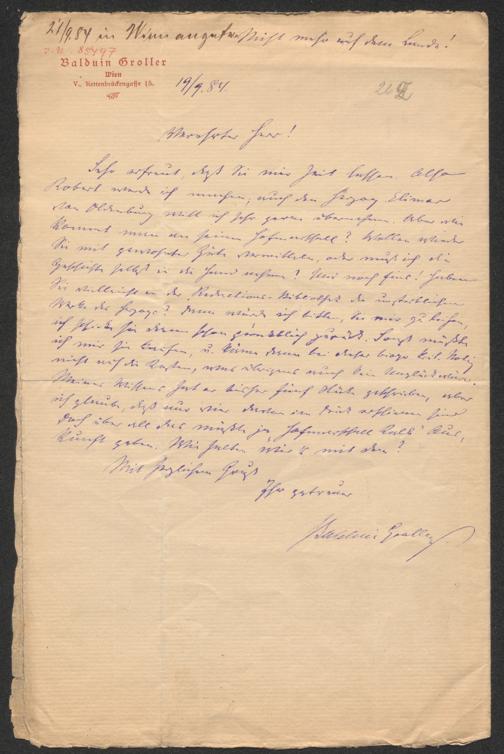 21/9.84 in Wien angek. Nicht mehr auf dem Lande!
J.N. 85497
Balduin Groller
Wien
V., Kettenbrückengasse 15.
19/9.84.
Verehrter Herr!
Sehr erfreut, daß Sie mir Zeit lassen. Also
Robert werde ich machen, auch den Herzog Elimar
von Oldenburg will ich sehr gerne übernehmen. Aber wie
kommt man an seinen Hofmarschall? Wollen wieder
Sie mit gewohnter Güte vermitteln, oder muß ich die
Geschichte selbst in die Hand nehmen? Und noch Eins! Haben
Sie vielleicht in der Redactions-Bibliothek die unsterblichen
Werke des Herzogs? Dann würde ich bitten, sie mir zu leihen,
ich schicke sie dann schon pünktlich zurück. Sonst müßte
ich mir sie kaufen, u. käme dann bei dieser biogr. Notiz
nicht auf die Kosten, was übrigens auch kein Unglück wäre.
Meines Wissens hat er bisher fünf Stücke geschrieben, aber
ich glaube, daß nur vier davon im Druck erschienen sind
Doch über all das müßte ja Hofmarschall Kalb Aus-
kunft geben. Wie halten wir's mit dem?
Mit herzlichem Gruß
Ihr getreuer
Balduin Groller